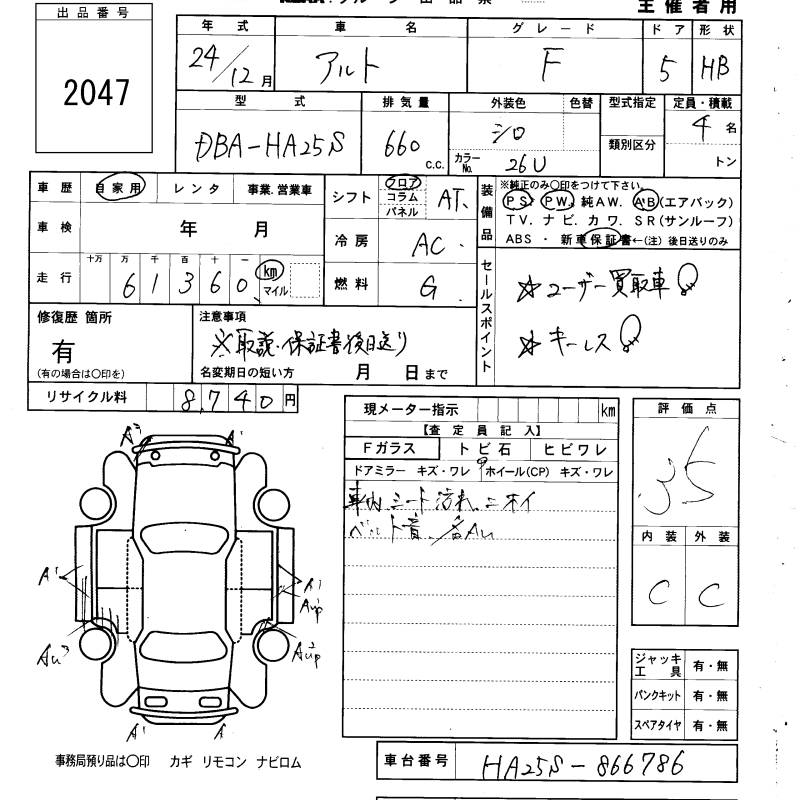 主催者用
出品番号
2047
年式 車名 グレード ドア 形状
24/12月 アルト F 5 HB
型式 排気量 外装色 色替 型式指定 定員・積載
DBA-HA25S 660 c.c. シロ 4名
カラーNo. 26U 類別区分 トン
車歴 自家用 レンタ 事業.営業車
シフト フロア コラム パネル AT.
装備品 ※純正のみ○印をつけて下さい。
PS. PW. 純AW. AB(エアバック)
TV. ナビ. カワ. SR(サンルーフ)
ABS ・ 新車保証書←(注) 後日送りのみ
車検 年 月
冷房 AC.
走行 十万 万 千 百 十 一
61360 km マイル
燃料 G.
セールスポイント
☆ユーザー買取車
☆キーレス
修復歴 箇所
有
(有の場合は○印を)
注意事項
※取説.保証書後日送り
名変期日の短い方 月 日まで
リサイクル料 8,740円
現メーター指示 km
【査定員記入】
Fガラス トビ石 ヒビワレ
ドアミラー キズ・ワレ ホイール(CP) キズ・ワレ
車内シート汚れ.ニオイ
ベルト音
評価点
3.5
内装 外装
C C
A' A'
A' A'
AU3
A' A'
ジャッキ工具 有・無
パンクキット 有・無
スペアタイヤ 有・無
事務局預り品は○印 カギ リモコン ナビロム
車台番号 HA25S-866786